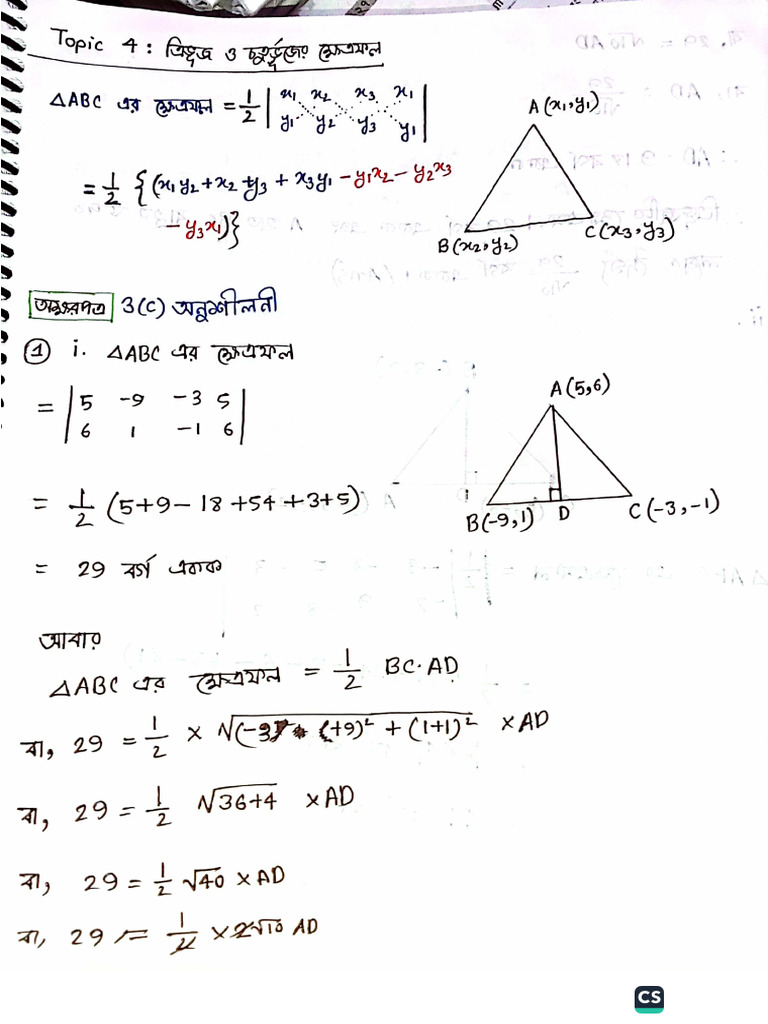 Topic 4: ত্রিভুজ ও চতুর্ভুজের ক্ষেত্রফল
△ABC এর ক্ষেত্রফল = 1/2 | x1 x2 x3 x1
y1 y2 y3 y1 |
A(x1, y1)
= 1/2 {(x1y2 + x2 y3 + x3y1 - y1x2 - y2x3
- y3x1)}
B(x2, y2)
C(x3, y3)
3(C) অনুশীলনী
① i. △ABC এর ক্ষেত্রফল
A(5,6)
= | 5 -9 -3 5
6 1 -1 6 |
= 1/2 (5+9-18+54+3+5)
B(-9,1) D C(-3,-1)
= 29 বর্গ একক
আবার
△ABC এর ক্ষেত্রফল = 1/2 BC·AD
বা, 29 = 1/2 × √(-3 +9)² + (1+1)² × AD
বা, 29 = 1/2 √36+4 × AD
বা, 29 = 1/2 √40 × AD
বা, 29 = 1/2 × 2√10 AD
CS